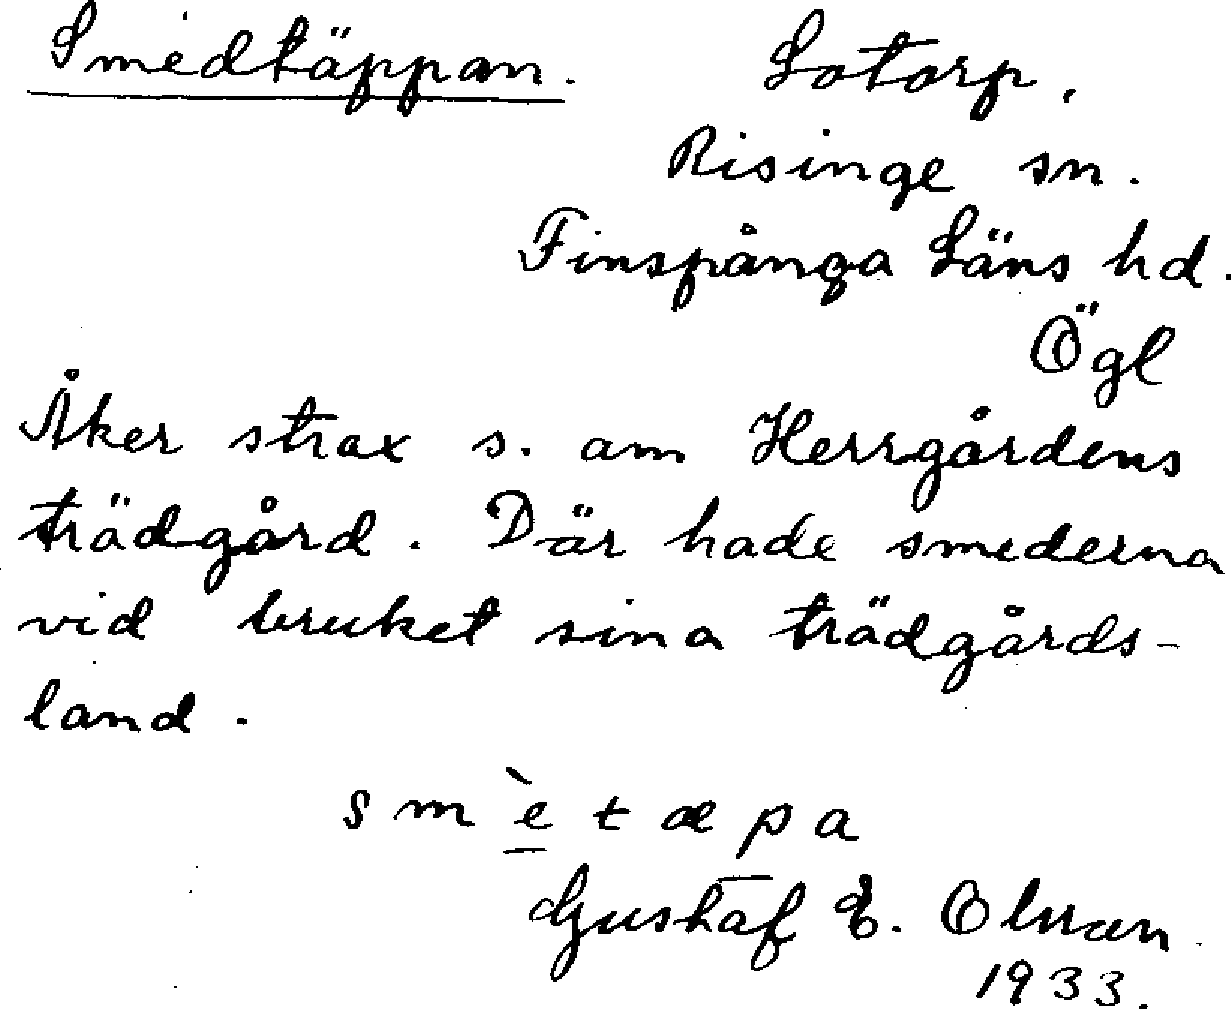 Smedtäppan. Lotorp,
Risinge sn.
Finspånga Läns hd.
Ögl
Åker strax s. om Herrgårdens
trädgård. Där hade smederna
vid bruket sina trädgårds-
land.
s m è t æ p a
Gustaf E. Olsson
1933.